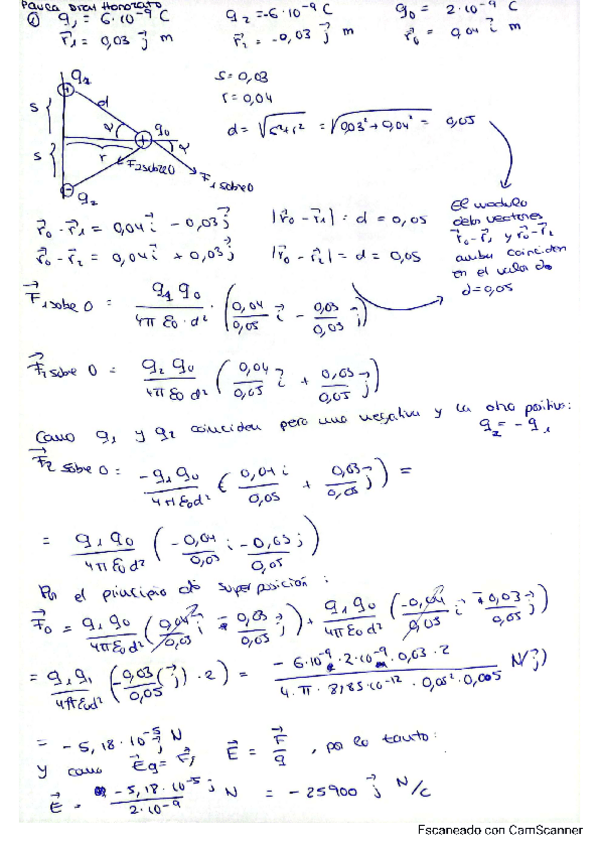 Paula Díaz Honorato
① q₁ = 6·10⁻⁹ C   q₂ = -6·10⁻⁹ C   q₀ = 2·10⁻⁹ C
r⃗₁ = 0,03 j⃗ m   r⃗₂ = -0,03 j⃗ m   r⃗₀ = 0,04 i⃗ m
q₂
s   d   s = 0,03
r = 0,04
α   q₀   d = √(s²+r²) = √(0,03²+0,04²) = 0,05
s   r   α
F₂sobre0
F₁sobre0
q₂
r⃗₀ - r⃗₁ = 0,04 i⃗ - 0,03 j⃗   |r⃗₀ - r⃗₁| = d = 0,05
r⃗₀ - r⃗₂ = 0,04 i⃗ + 0,03 j⃗   |r⃗₀ - r⃗₂| = d = 0,05
El modulo
de los vectores
r⃗₀-r⃗₁ y r⃗₀-r⃗₂
ambos coinciden
en el valor de
d=0,05
F⃗₁ sobre 0 = q₁ q₀ / 4π ε₀·d² · (0,04/0,05 i⃗ - 0,03/0,03 j⃗)
F⃗₂ sobre 0 = q₂ q₀ / 4π ε₀ d² (0,04/0,05 i⃗ + 0,03/0,05 j⃗)
Como q₁ y q₂ coinciden pero una negativa y la otra positiva:
q₂ = - q₁
F⃗₂ sobre 0 = -q₁ q₀ / 4π ε₀ d² (0,04 i / 0,05 + 0,03/0,05 j⃗) =
= q₁ q₀ / 4π ε₀ d² (-0,04/0,03 i - 0,03/0,05 j)
Por el principio de superposición:
F⃗₀ = q₁ q₀ / 4π ε₀ d² (0,04/0,05 i⃗ - 0,03/0,05 j⃗) + q₁ q₀ / 4π ε₀ d² (-0,04/0,05 i⃗ - 0,03/0,05 j⃗)
= q₁ q₁ / 4π ε₀ d² (-0,03/0,05 (j⃗) · 2) = -6·10⁻⁹·2·10⁻⁹·0,03·2 / 4·π·8,85·10⁻¹²·0,05²·0,005 N j⃗
= -5,18·10⁻⁵ j⃗ N
y como E⃗q = F⃗, E⃗ = F⃗/q , por lo tanto:
E⃗ = -5,18·10⁻⁵ j / 2·10⁻⁹ N = -25900 j⃗ N/C
Escaneado con CamScanner